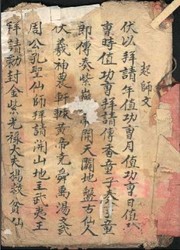 起師文
伏以拜請年值功曹月值功曹日值功
曹時值功曹拜請傳香童子奏事童
即傳奏開天闢地盤古仙人
伏羲神農軒轅黃帝堯舜禹湯文武
周公孔聖仙師拜請開山地主武夷王
拜請勅封金紫光祿大夫楊救貧仙